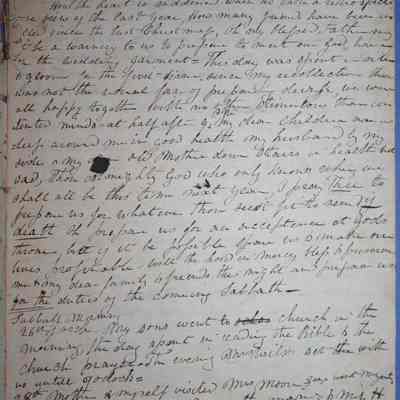 Must the heart is saddened when we take a retrospective
view of the last year. How many friend have been
since the last Christmas, oh my blessed father may
be a warning to us to prepare to meet our god, having
on the wedding garment = This day was spent in
& gloom for the first time since my recollection there
was not the usual fuss of preparing dainties, we were
all happy together with no other dainties than con-
tented minds. at half after 9 PM my dear children are
sleep around me in good health my husband by my
side & my old Mother down stairs in health
God, Thou Almighty God who only knows where we
shall all be this time next year, I pray Thee to
prepare us for whatever thou seest fit to send if
death O prepare us for an acceptance at gods
throne, but if it be possible spare us & make our
lives profitable Will the lord in mercy bless & preserve
me & my dear family & friends this night and prepare us
for the duties of the coming Sabbath =
Sabbath Morning
26th My sons went to church in the
morning, the day spent in reading the Bible & the
church prayer book evening set with
us until 9 o'clock =
Mother & myself visited Mrs Moon